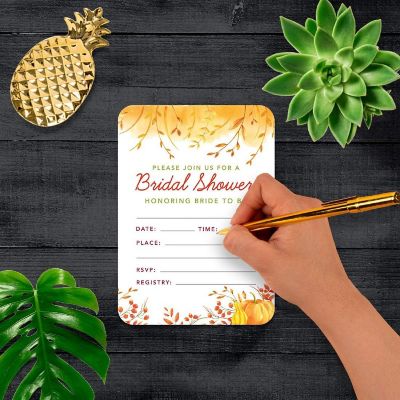 PLEASE JOIN US FOR A
Bridal Shower
HONORING BRIDE TO B
DATE: TIME:
PLACE:
RSVP:
REGISTRY: